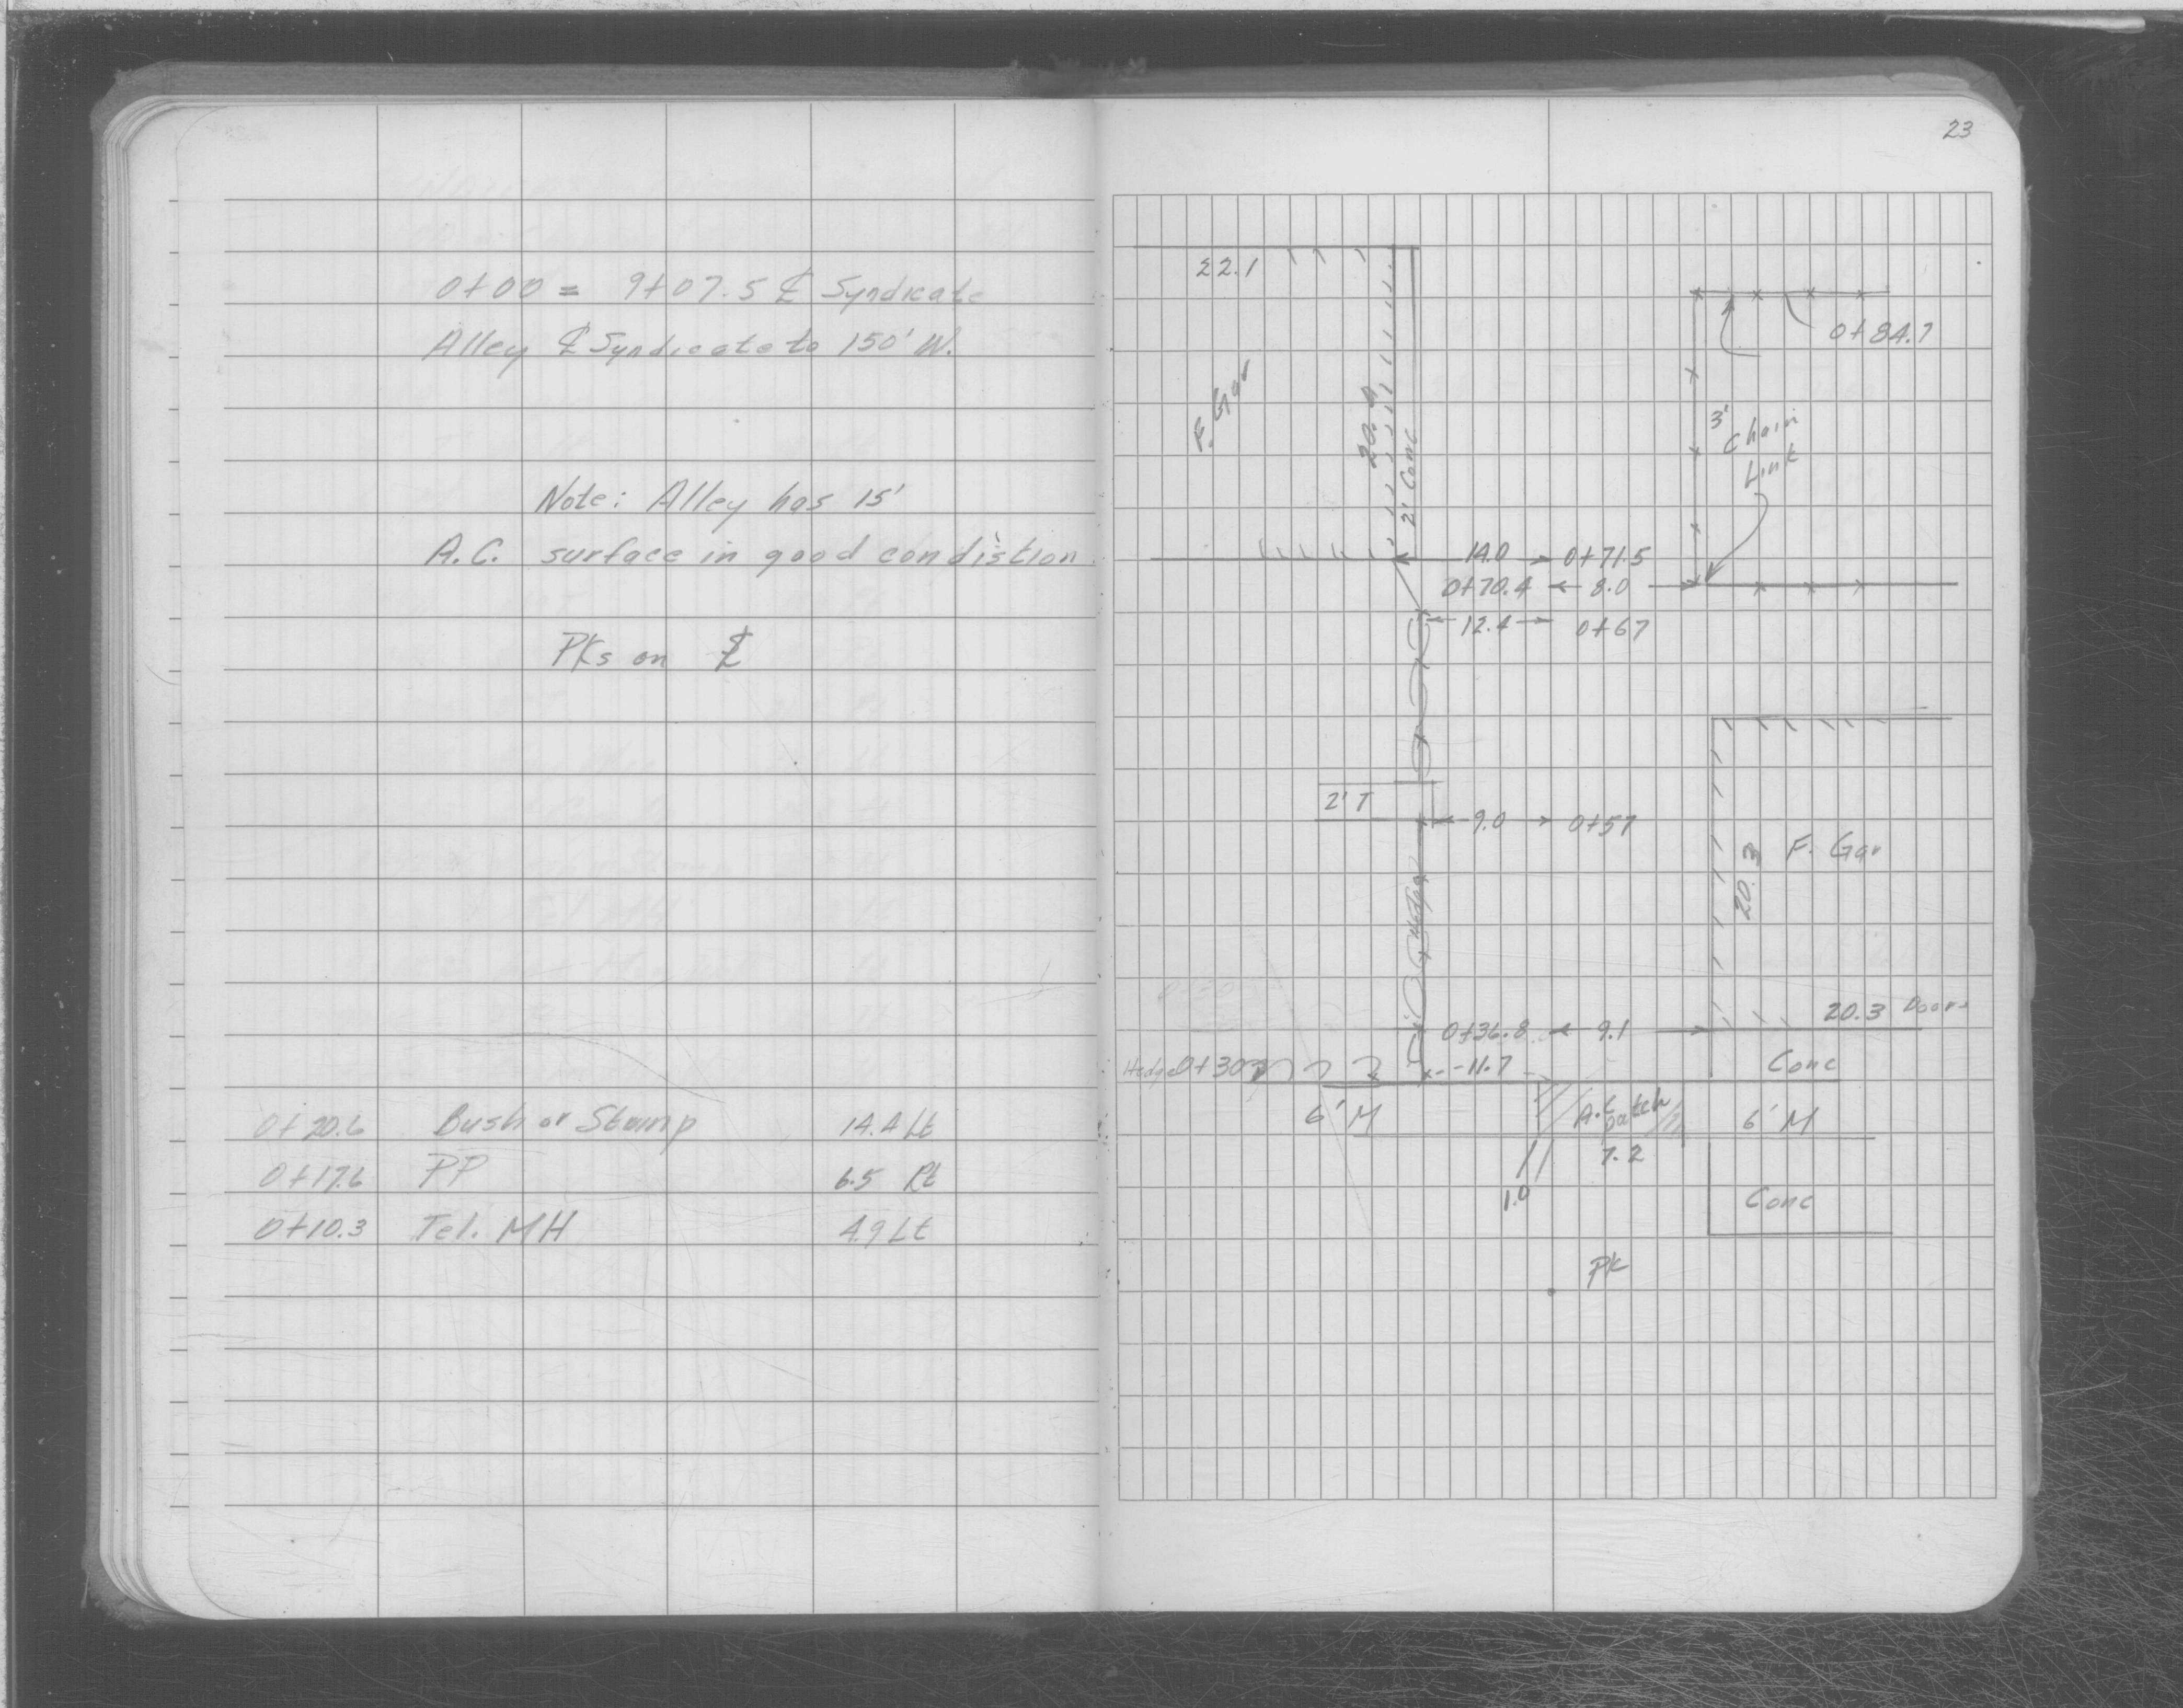 0+00 = 9+07.5 ℄ Syndicate
Alley ℄ Syndicate to 150' W.
Note: Alley has 15'
A.C. surface in good condistion
PKs on ℄
0+20.6 Bush or Stump 14.4 Lt
0+17.6 PP 6.5 Rt
0+10.3 Tel. MH 4.9 Lt
23
22.1
0+84.7
F. Gar
20.4
2' Conc
3' Chain
Link
14.0 0+71.5
0+70.4 8.0
12.4 0+67
2' T
9.0 0+57
F. Gar
20.3
Hedge
20.3 Doors
0+36.8 9.1
Hedge 0+30 11.7
Conc
6' M
A.C. patch
6' M
7.2
1.0
Conc
PK